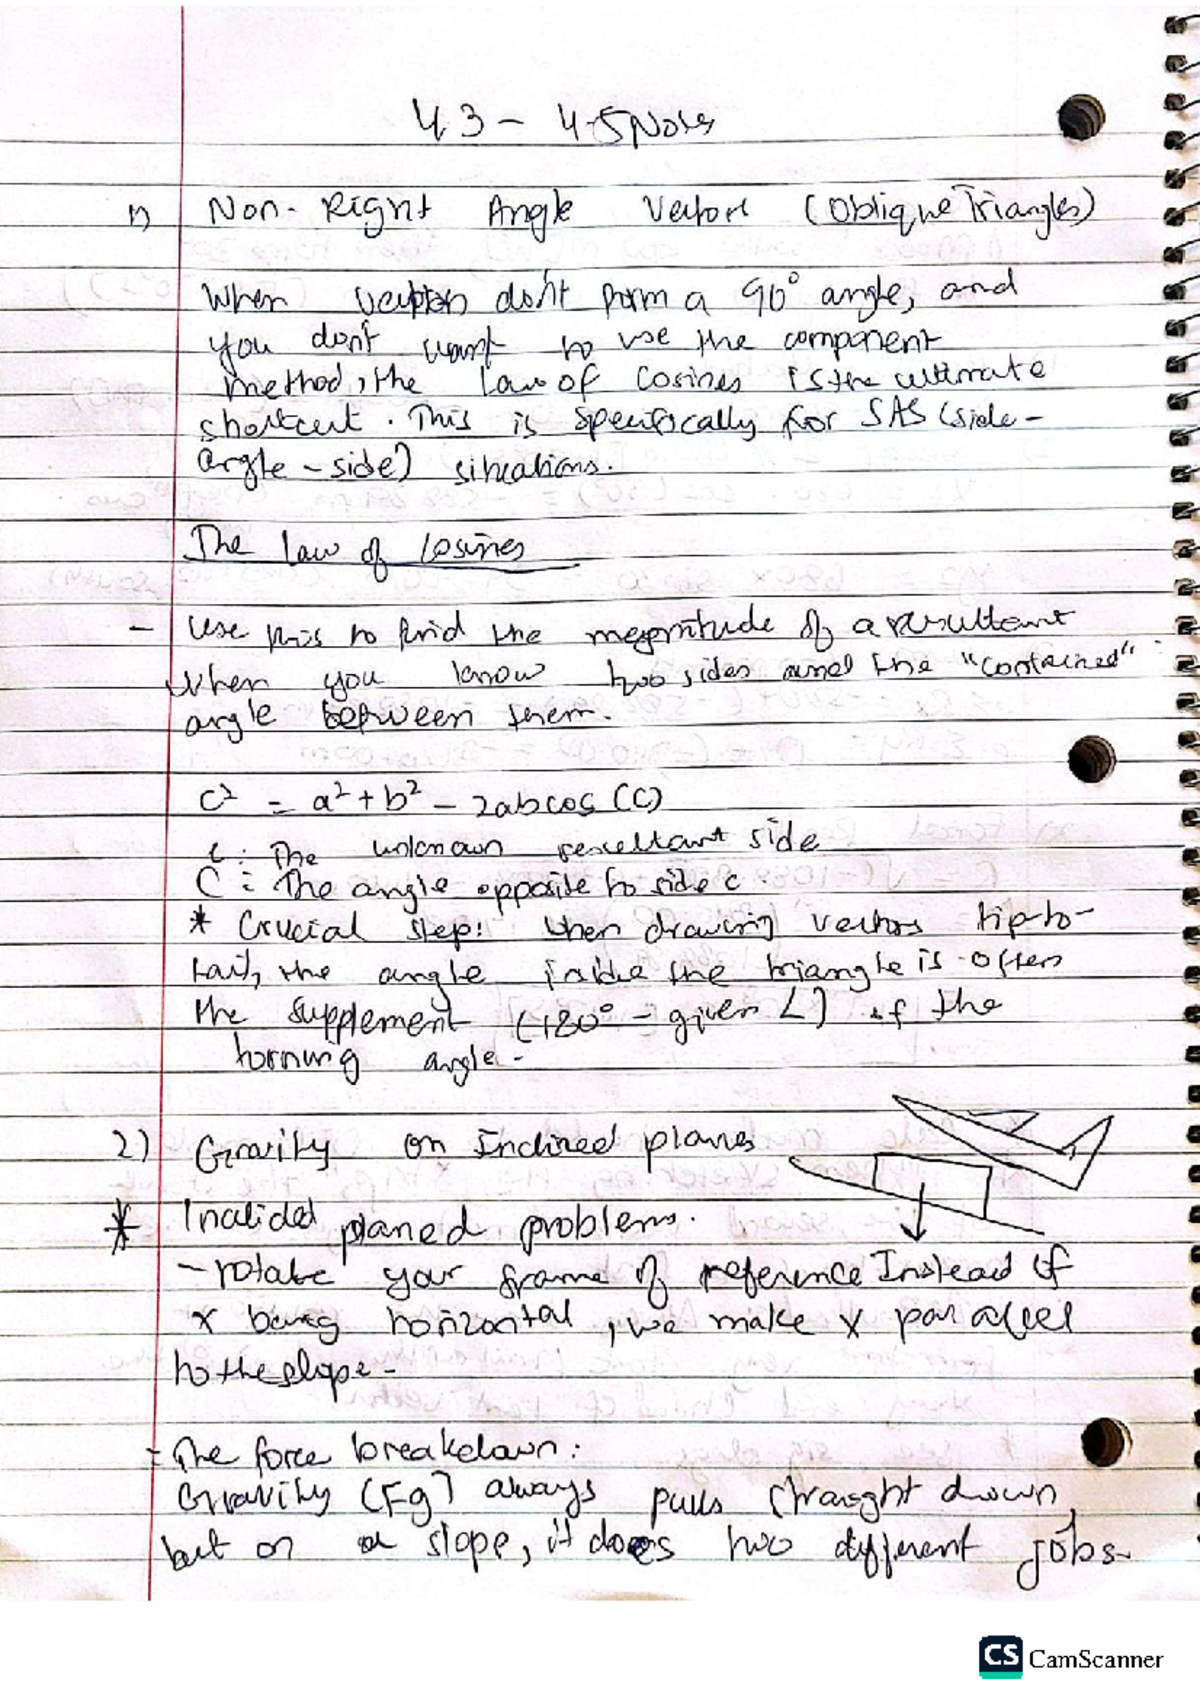 4.3 - 4.5 Notes
1) Non-Right Angle Vectors (Oblique Triangles)
When vectors don't form a 90° angle, and
you don't want to use the component
method, the Law of Cosines is the ultimate
shortcut. This is specifically for SAS (side-
angle-side) situations.
The Law of Cosines
- Use this to find the magnitude of a resultant
when you know two sides and the "contained"
angle between them.
c² = a² + b² - 2abcos(C)
c: The unknown resultant side
C: The angle opposite to side c.
* Crucial step: When drawing vectors tip-to-
tail, the angle inside the triangle is often
the supplement (180° - given ∠) if the
turning angle.
2) Gravity on Inclined planes
* Inclided planed problems.
- rotate your frame of reference Instead of
x being horizontal, we make x parallel
to the slope.
- The force breakdown:
Gravity (Fg) always pulls straight down,
but on a slope, it does two different jobs.
CS CamScanner